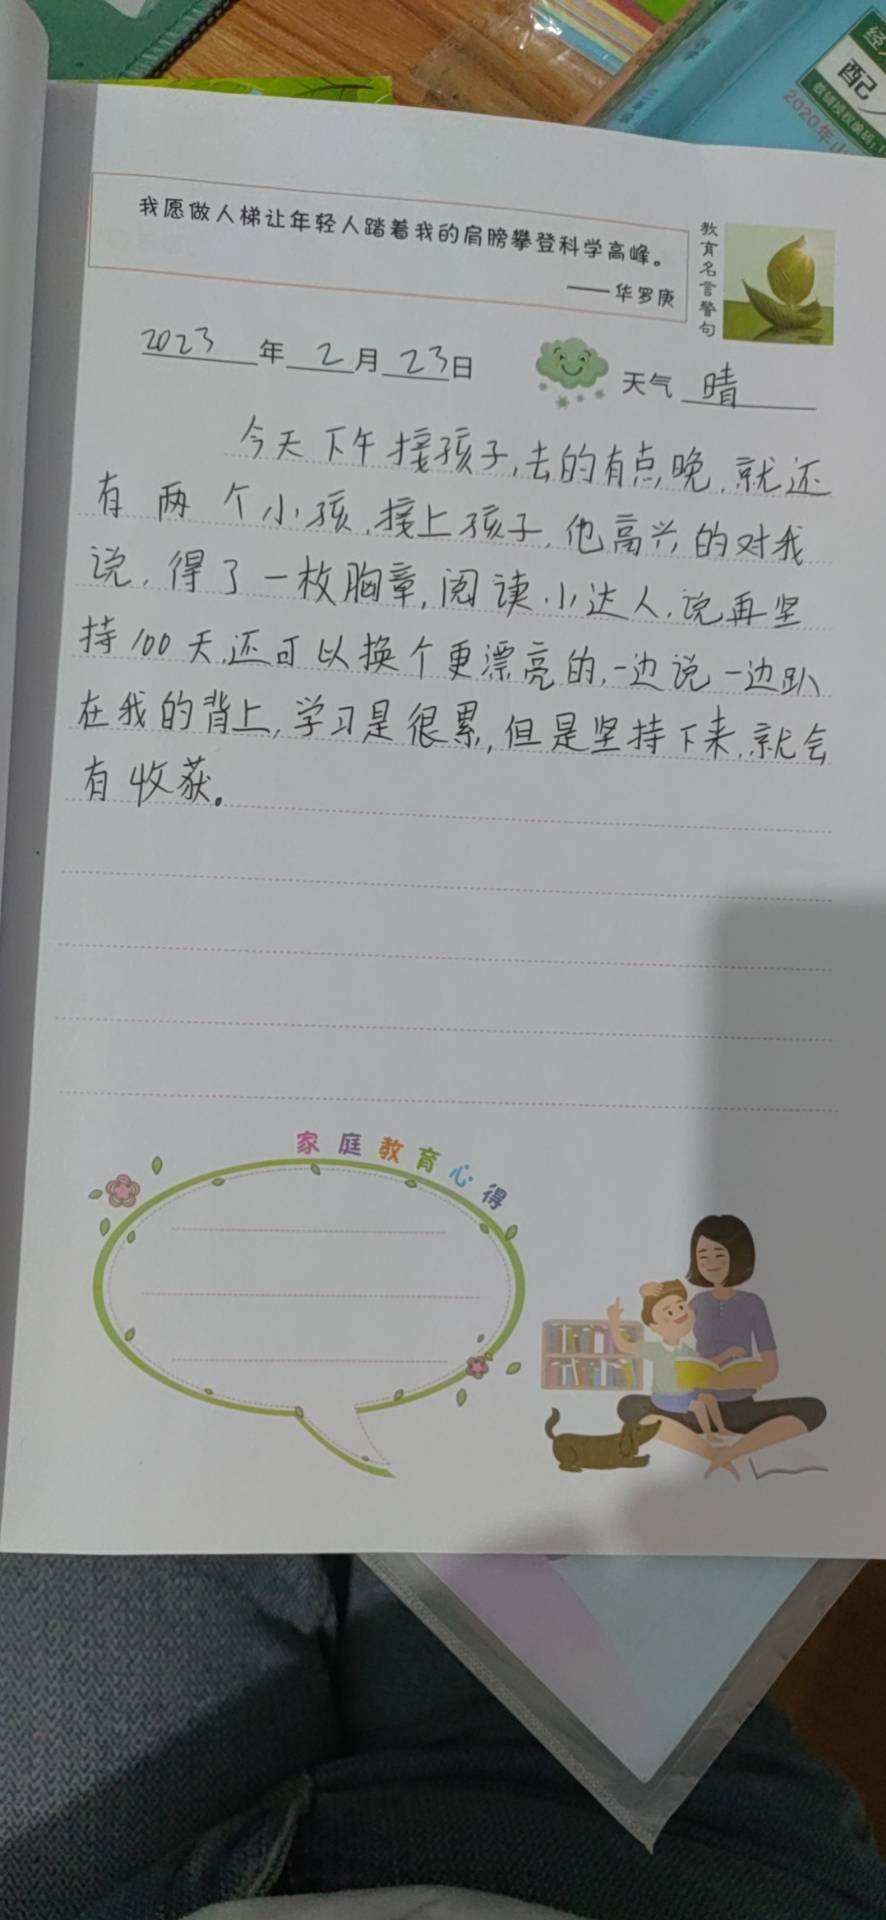 经
配
教辅授权编码:
2020年山
我愿做人梯让年轻人踏着我的肩膀攀登科学高峰。
——华罗庚
教育名言警句
2023年2月23日
天气 晴
今天下午接孩子,去的有点晚,就还
有两个小孩,接上孩子,他高兴的对我
说,得了一枚胸章,阅读小达人,说再坚
持100天,还可以换个更漂亮的,一边说一边趴
在我的背上,学习是很累,但是坚持下来,就会
有收获。
家庭教育心得